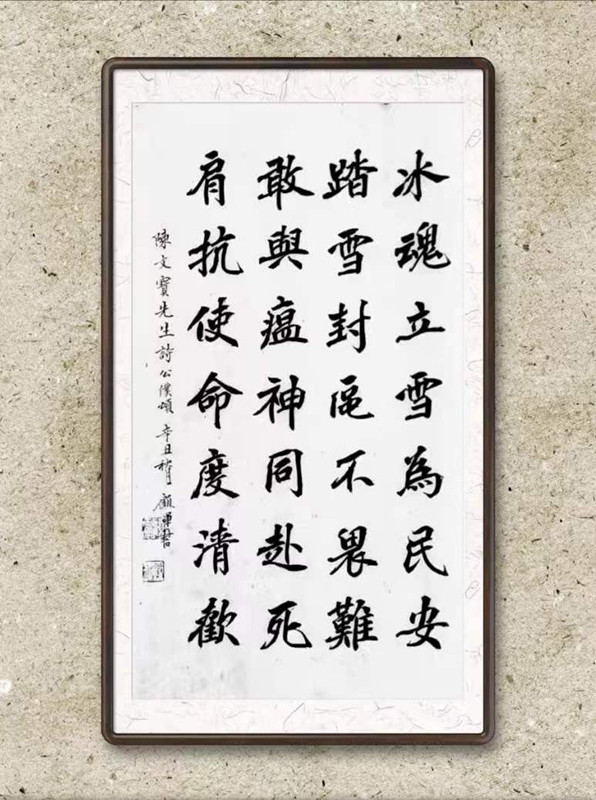 冰魂立雪為民安
踏雪封區不畏難
敢與瘟神同赴死
肩抗使命度清歡
陳文寶先生詩公僕頌 辛丑 書